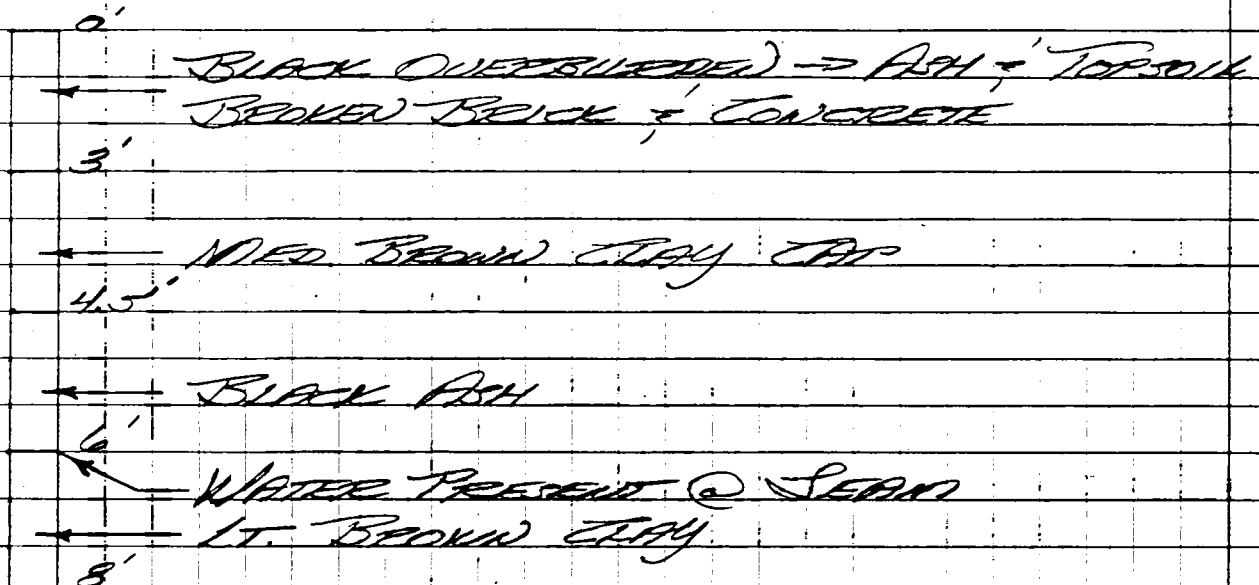 0'
BLACK OVERBURDEN -> ASH & TOPSOIL
BROKEN BRICK & CONCRETE
3'
MED BROWN CLAY CAP
4.5'
BLACK ASH
6'
WATER PRESENT @ SEAM
LT. BROWN CLAY
8'